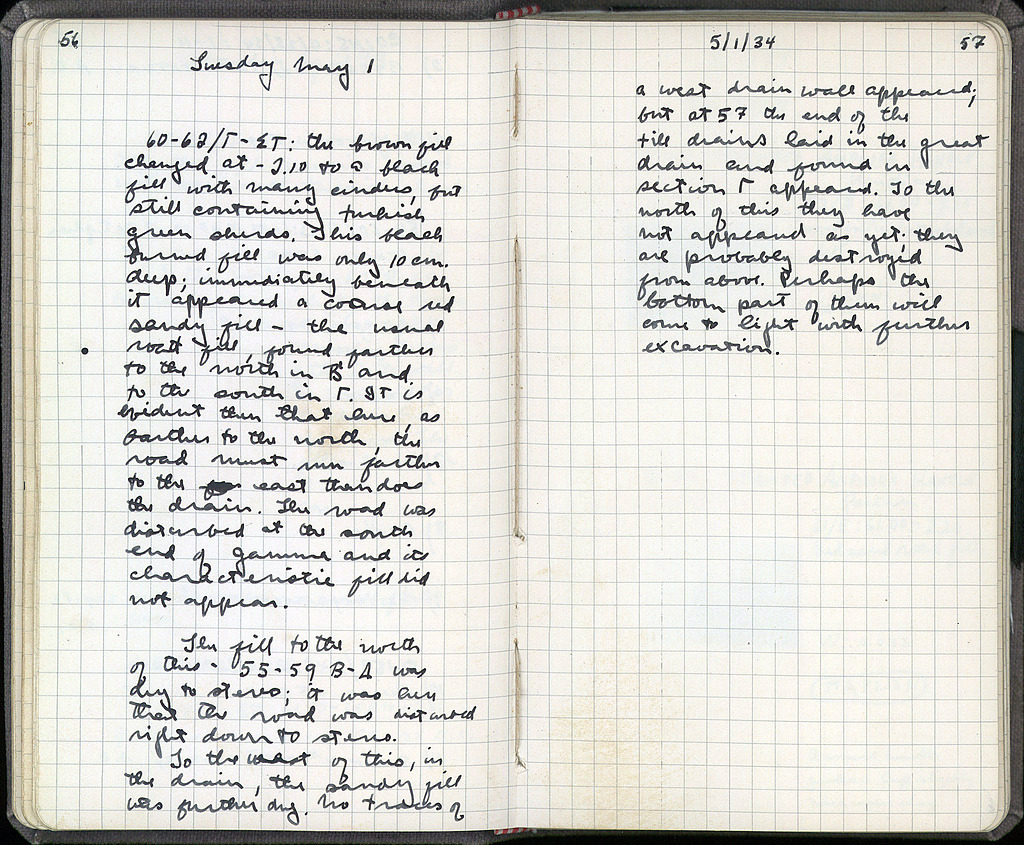 56
Tuesday May 1
60-62/Γ-ΣΤ: the brown fill
changed at -2.10 to a black
fill with many cinders, but
still containing turkish
green sherds. This black
burned fill was only 10 cm.
deep; immediately beneath
it appeared a coarse red
sandy fill - the usual
road fill, found farther
to the north in B and
to the south in Γ. It is
evident then that here, as
farther to the north, the
road must run farther
to the east than does
the drain. The road was
disturbed at the south
end of gamma and its
characteristic fill did
not appear.
The fill to the north
of this - 55-59 B-Δ was
dug to stereo; it was here
that the road was disturbed
right down to stereo.
To the west of this, in
the drain, the sandy fill
was further dug. No traces of
5/1/34
57
a west drain wall appeared;
but at 57 the end of the
tile drains laid in the great
drain and found in
section Γ appeared. To the
north of this they have
not appeared as yet; they
are probably destroyed
from above. Perhaps the
bottom part of them will
come to light with further
excavation.